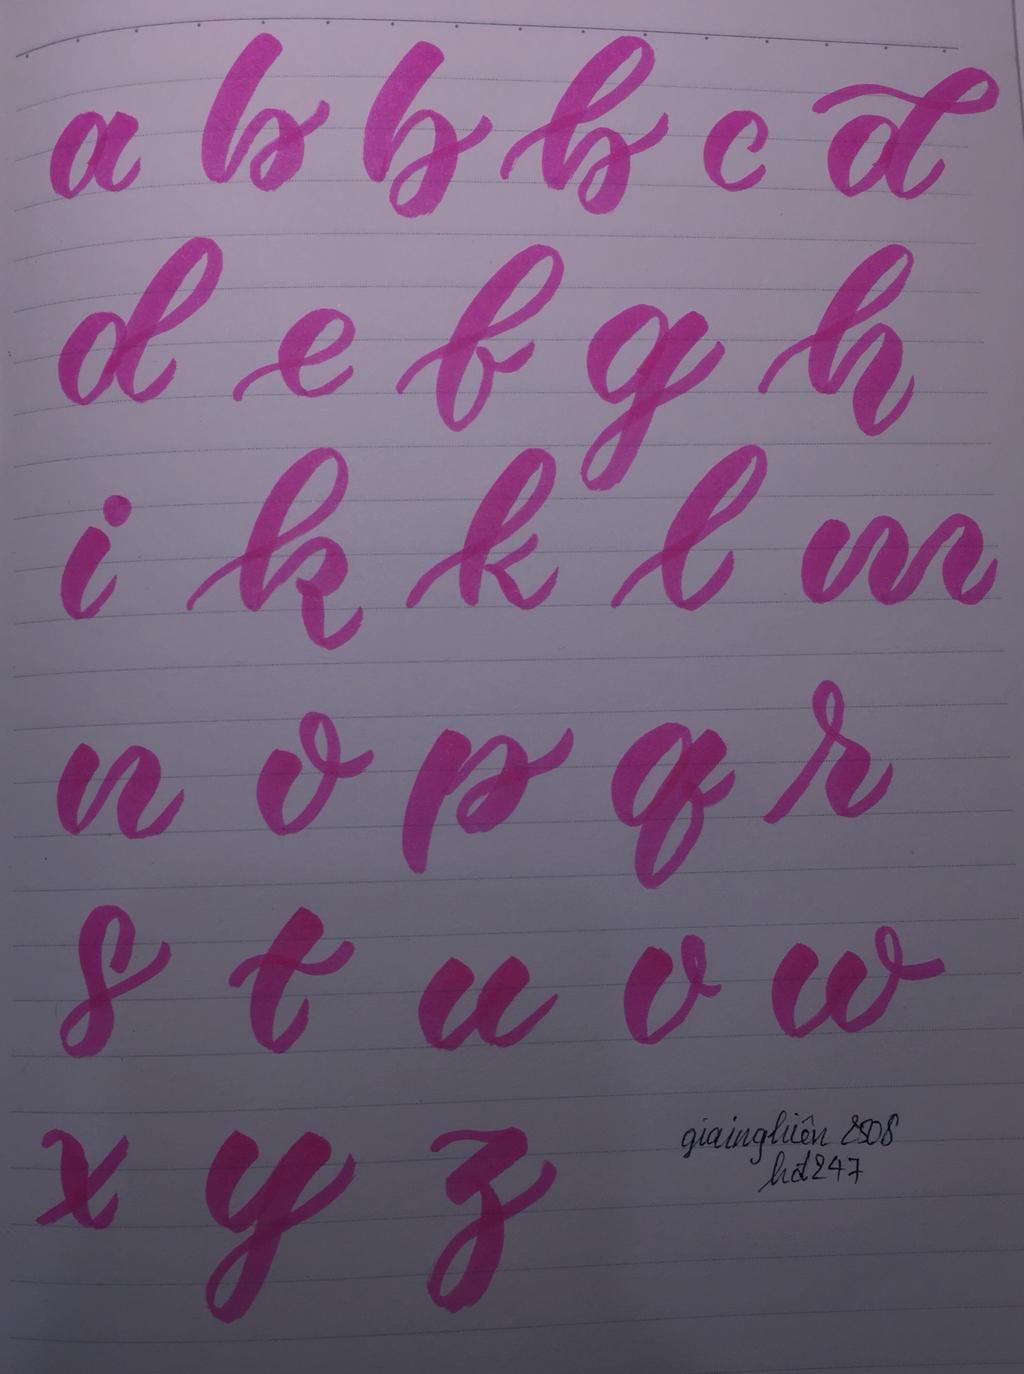 a b b b c d
d e f g h
i k k l m
n o p q r
s t u v w
x y z
giainghiên 2508
hd247